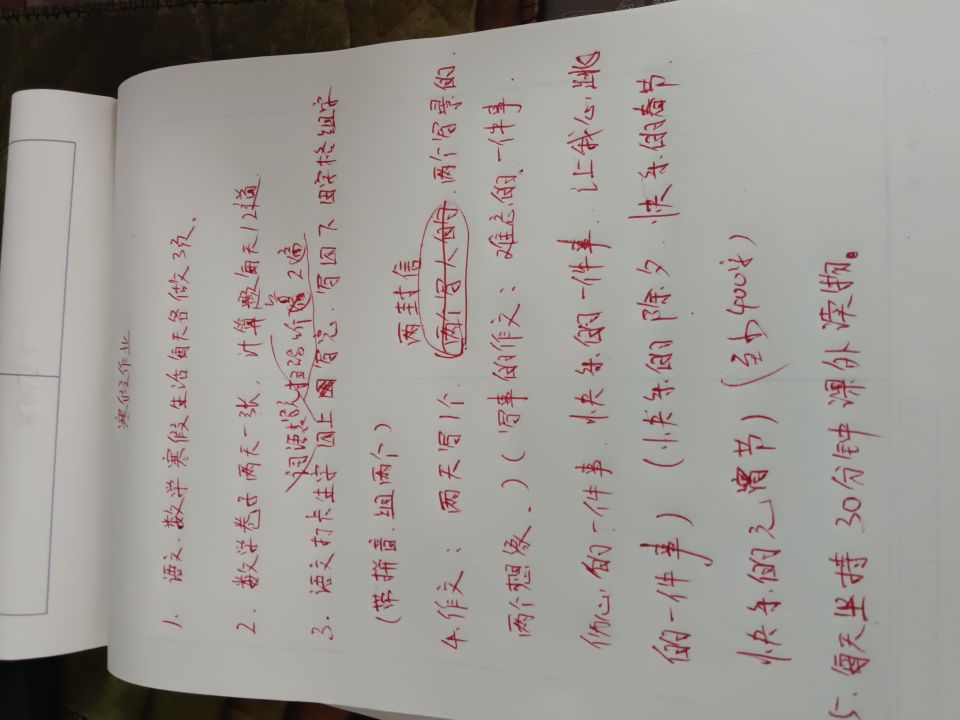 寒假作业
1. 语文.数学寒假生活每天各做3页。
2. 数学卷子两天一张. 计算题每天12道
词语 2遍
3. 语文打卡生字 四上写完. 写四下田字格组字
(带拼音.组两个)
两封信
4.作文: 两天写1个. 两个写人的. 两个写景的
两个想象.)(写事的作文: 难忘的一件事.
伤心的一件事. 快乐的一件事. 让我心跳
的一件事) (快乐的除夕. 快乐的春节
快乐的元宵节) (至少400字)
5. 每天坚持30分钟课外读物。